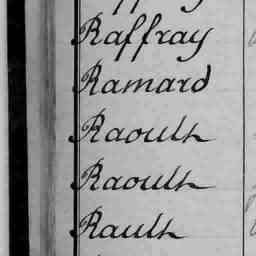 Raffray
Ramard
Raoult
Raoult
Rault